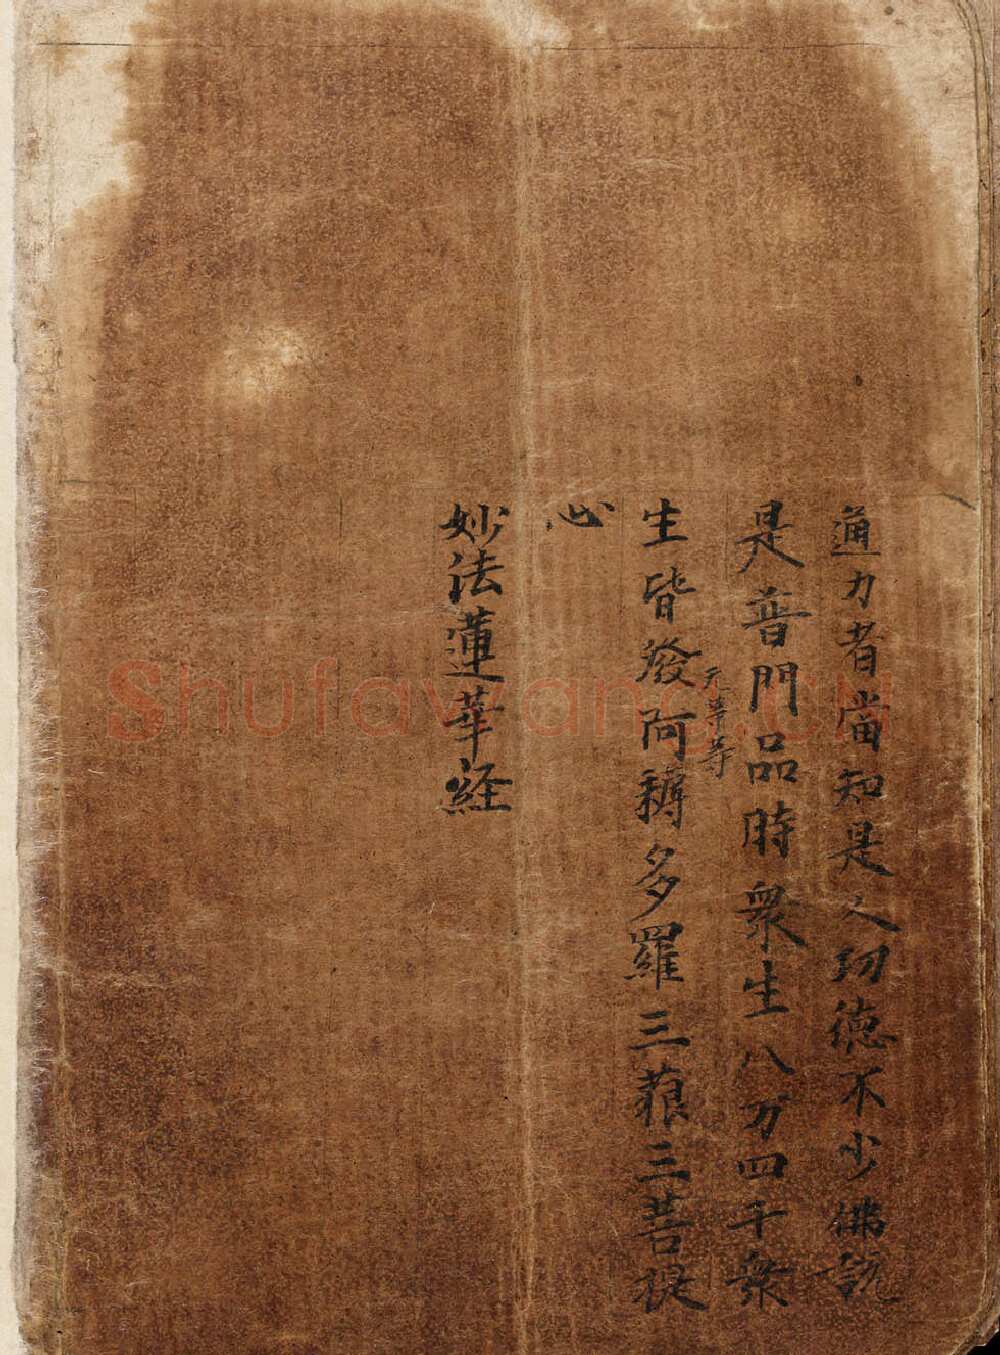 通力者當知是人功德不少佛說
是普門品時衆生八万四千衆
无等等
生皆發阿耨多羅三藐三菩提
心
妙法蓮華経
Shufawang.cn